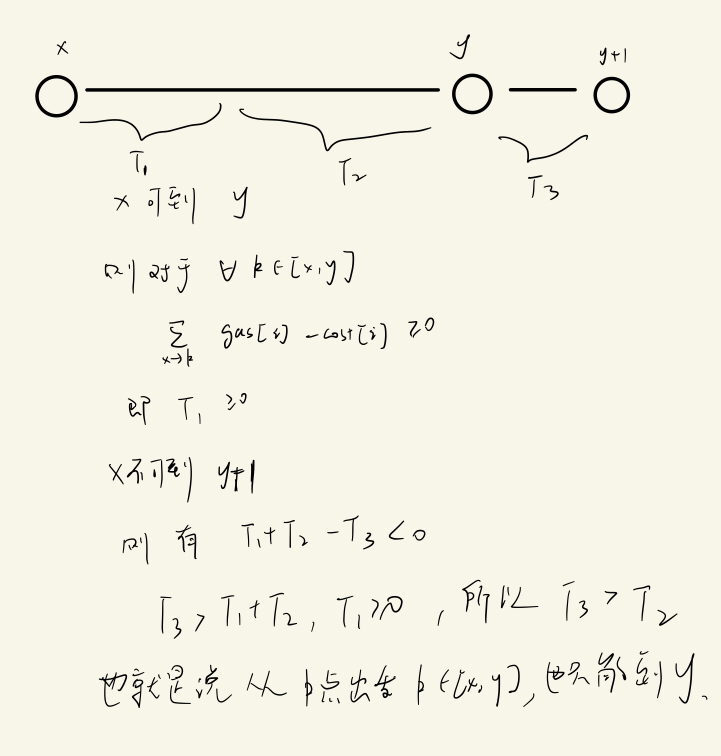 x y y+1
T₁ T₂ T₃
x 可到 y
则对于 ∀ k∈[x,y]
∑ gas[i] - cost[i] ≥0
x→k
即 T₁ ≥0
x不可到 y+1
则 有 T₁+T₂ -T₃ <0
T₃ > T₁+T₂, T₁≥0 , 所以 T₃ > T₂
也就是说 从 k点出发 k∈[x,y], 也只能到 y.